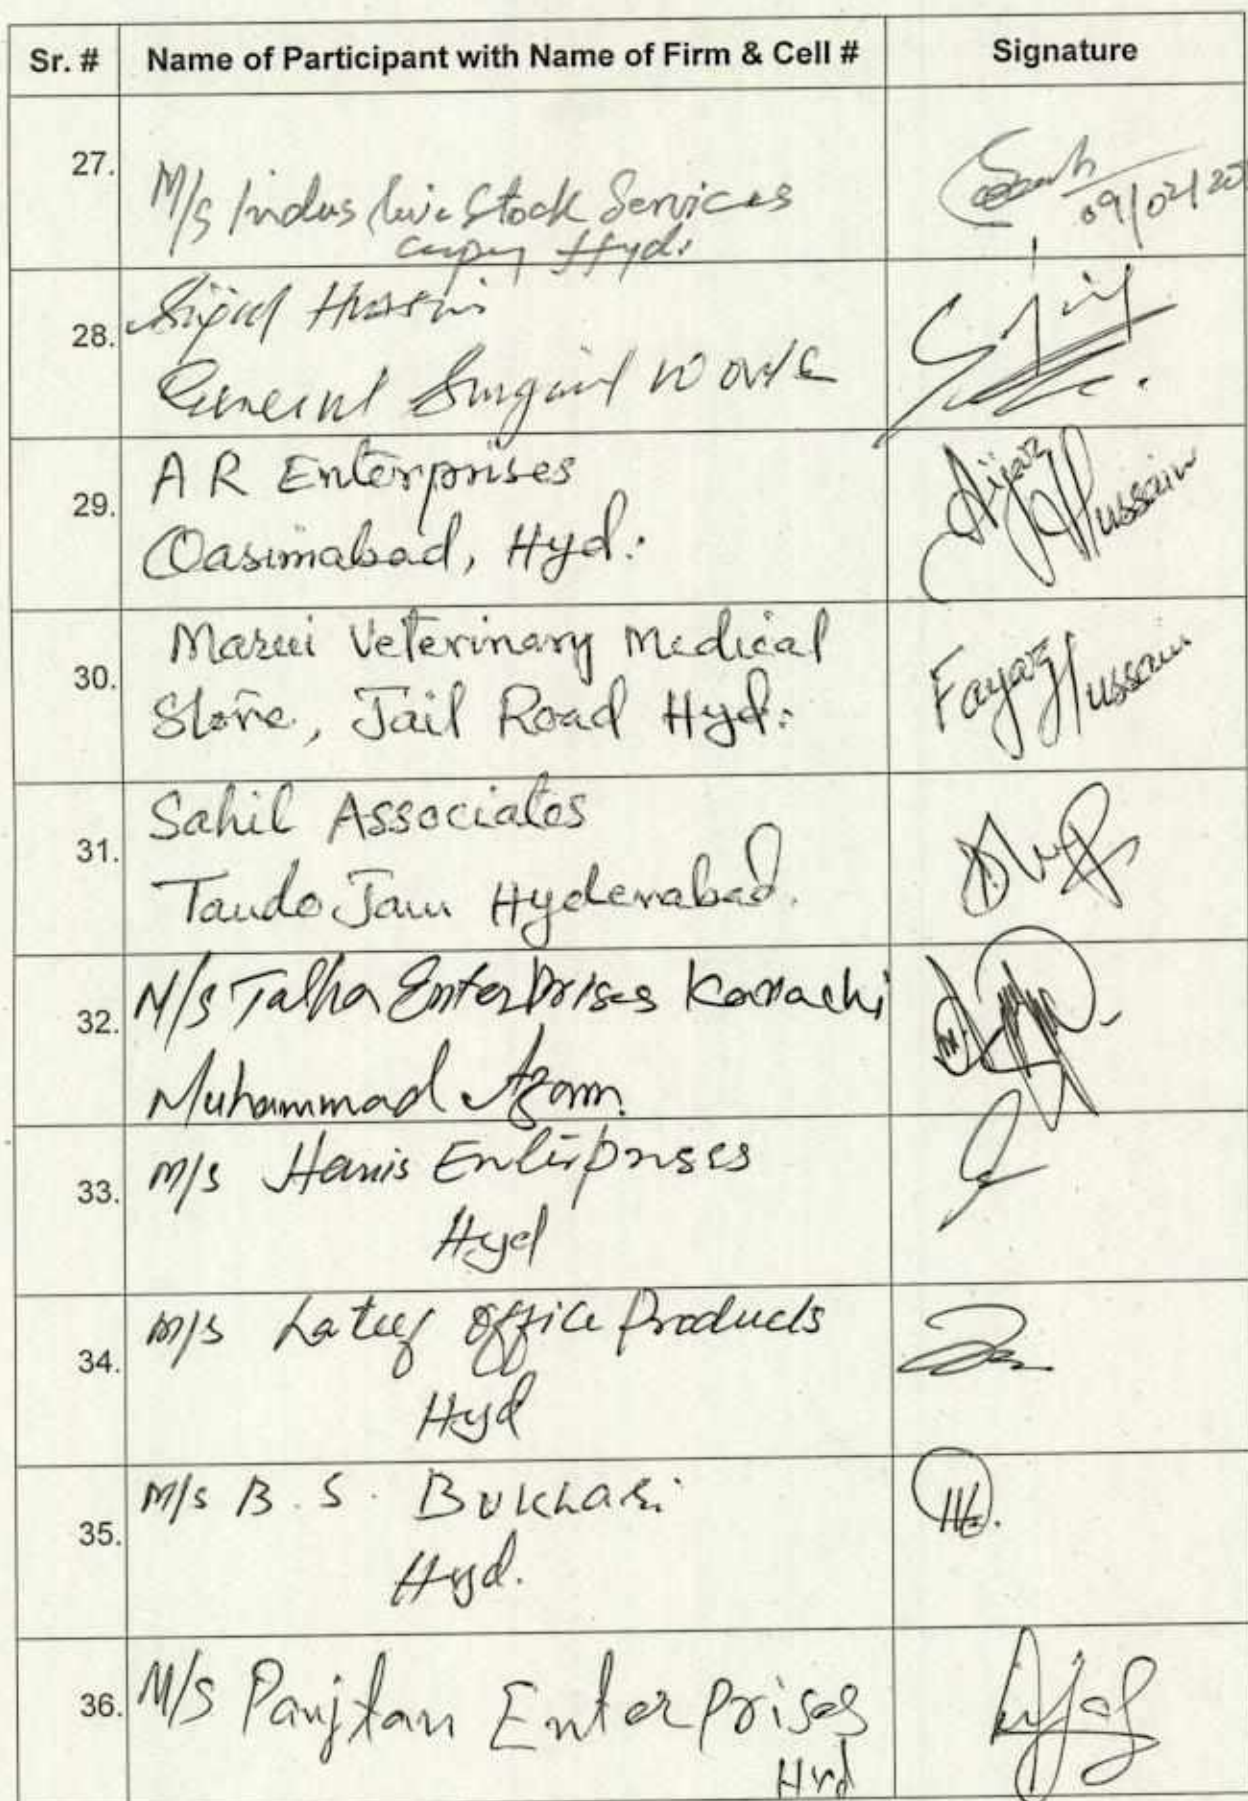 Sr. # Name of Participant with Name of Firm & Cell # Signature
27. M/s Indus Live Stock Services
Hyd. 09/02/20
28. Hussain
General Surgical Works
29. A R Enterprises Aijaz Hussain
Qasimabad, Hyd.
30. Marui Veterinary Medical Fayaz Hussain
Store, Jail Road Hyd:
31. Sahil Associates
Tando Jam Hyderabad.
32. M/s Talha Enterprises Karachi
Muhammad Azam.
33. M/s Haris Enterprises
Hyd
34. M/s Lateef Office Products
Hyd
35. M/s B. S. Bukhari
Hyd.
36. M/s Panjtan Enterprises
Hyd